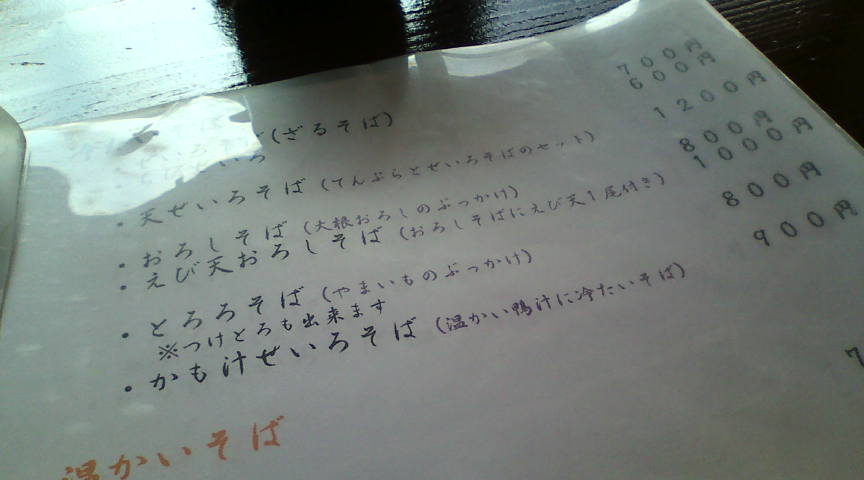 (ざるそば) 700円
600円
・天ぜいろそば(てんぷらとせいろそばのセット) 1200円
・おろしそば(大根おろしのぶっかけ) 800円
・えび天おろしそば(おろしそばにえび天1尾付き) 1000円
・とろろそば(やまいものぶっかけ) 800円
※つけとろも出来ます
・かも汁ぜいろそば(温かい鴨汁に冷たいそば) 900円
温かいそば